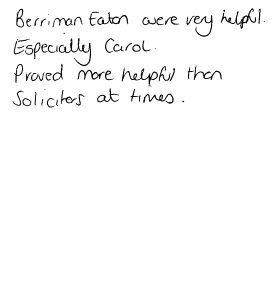 Berriman Eaton were very helpful.
Especially Carol.
Proved more helpful than
Solicitors at times.